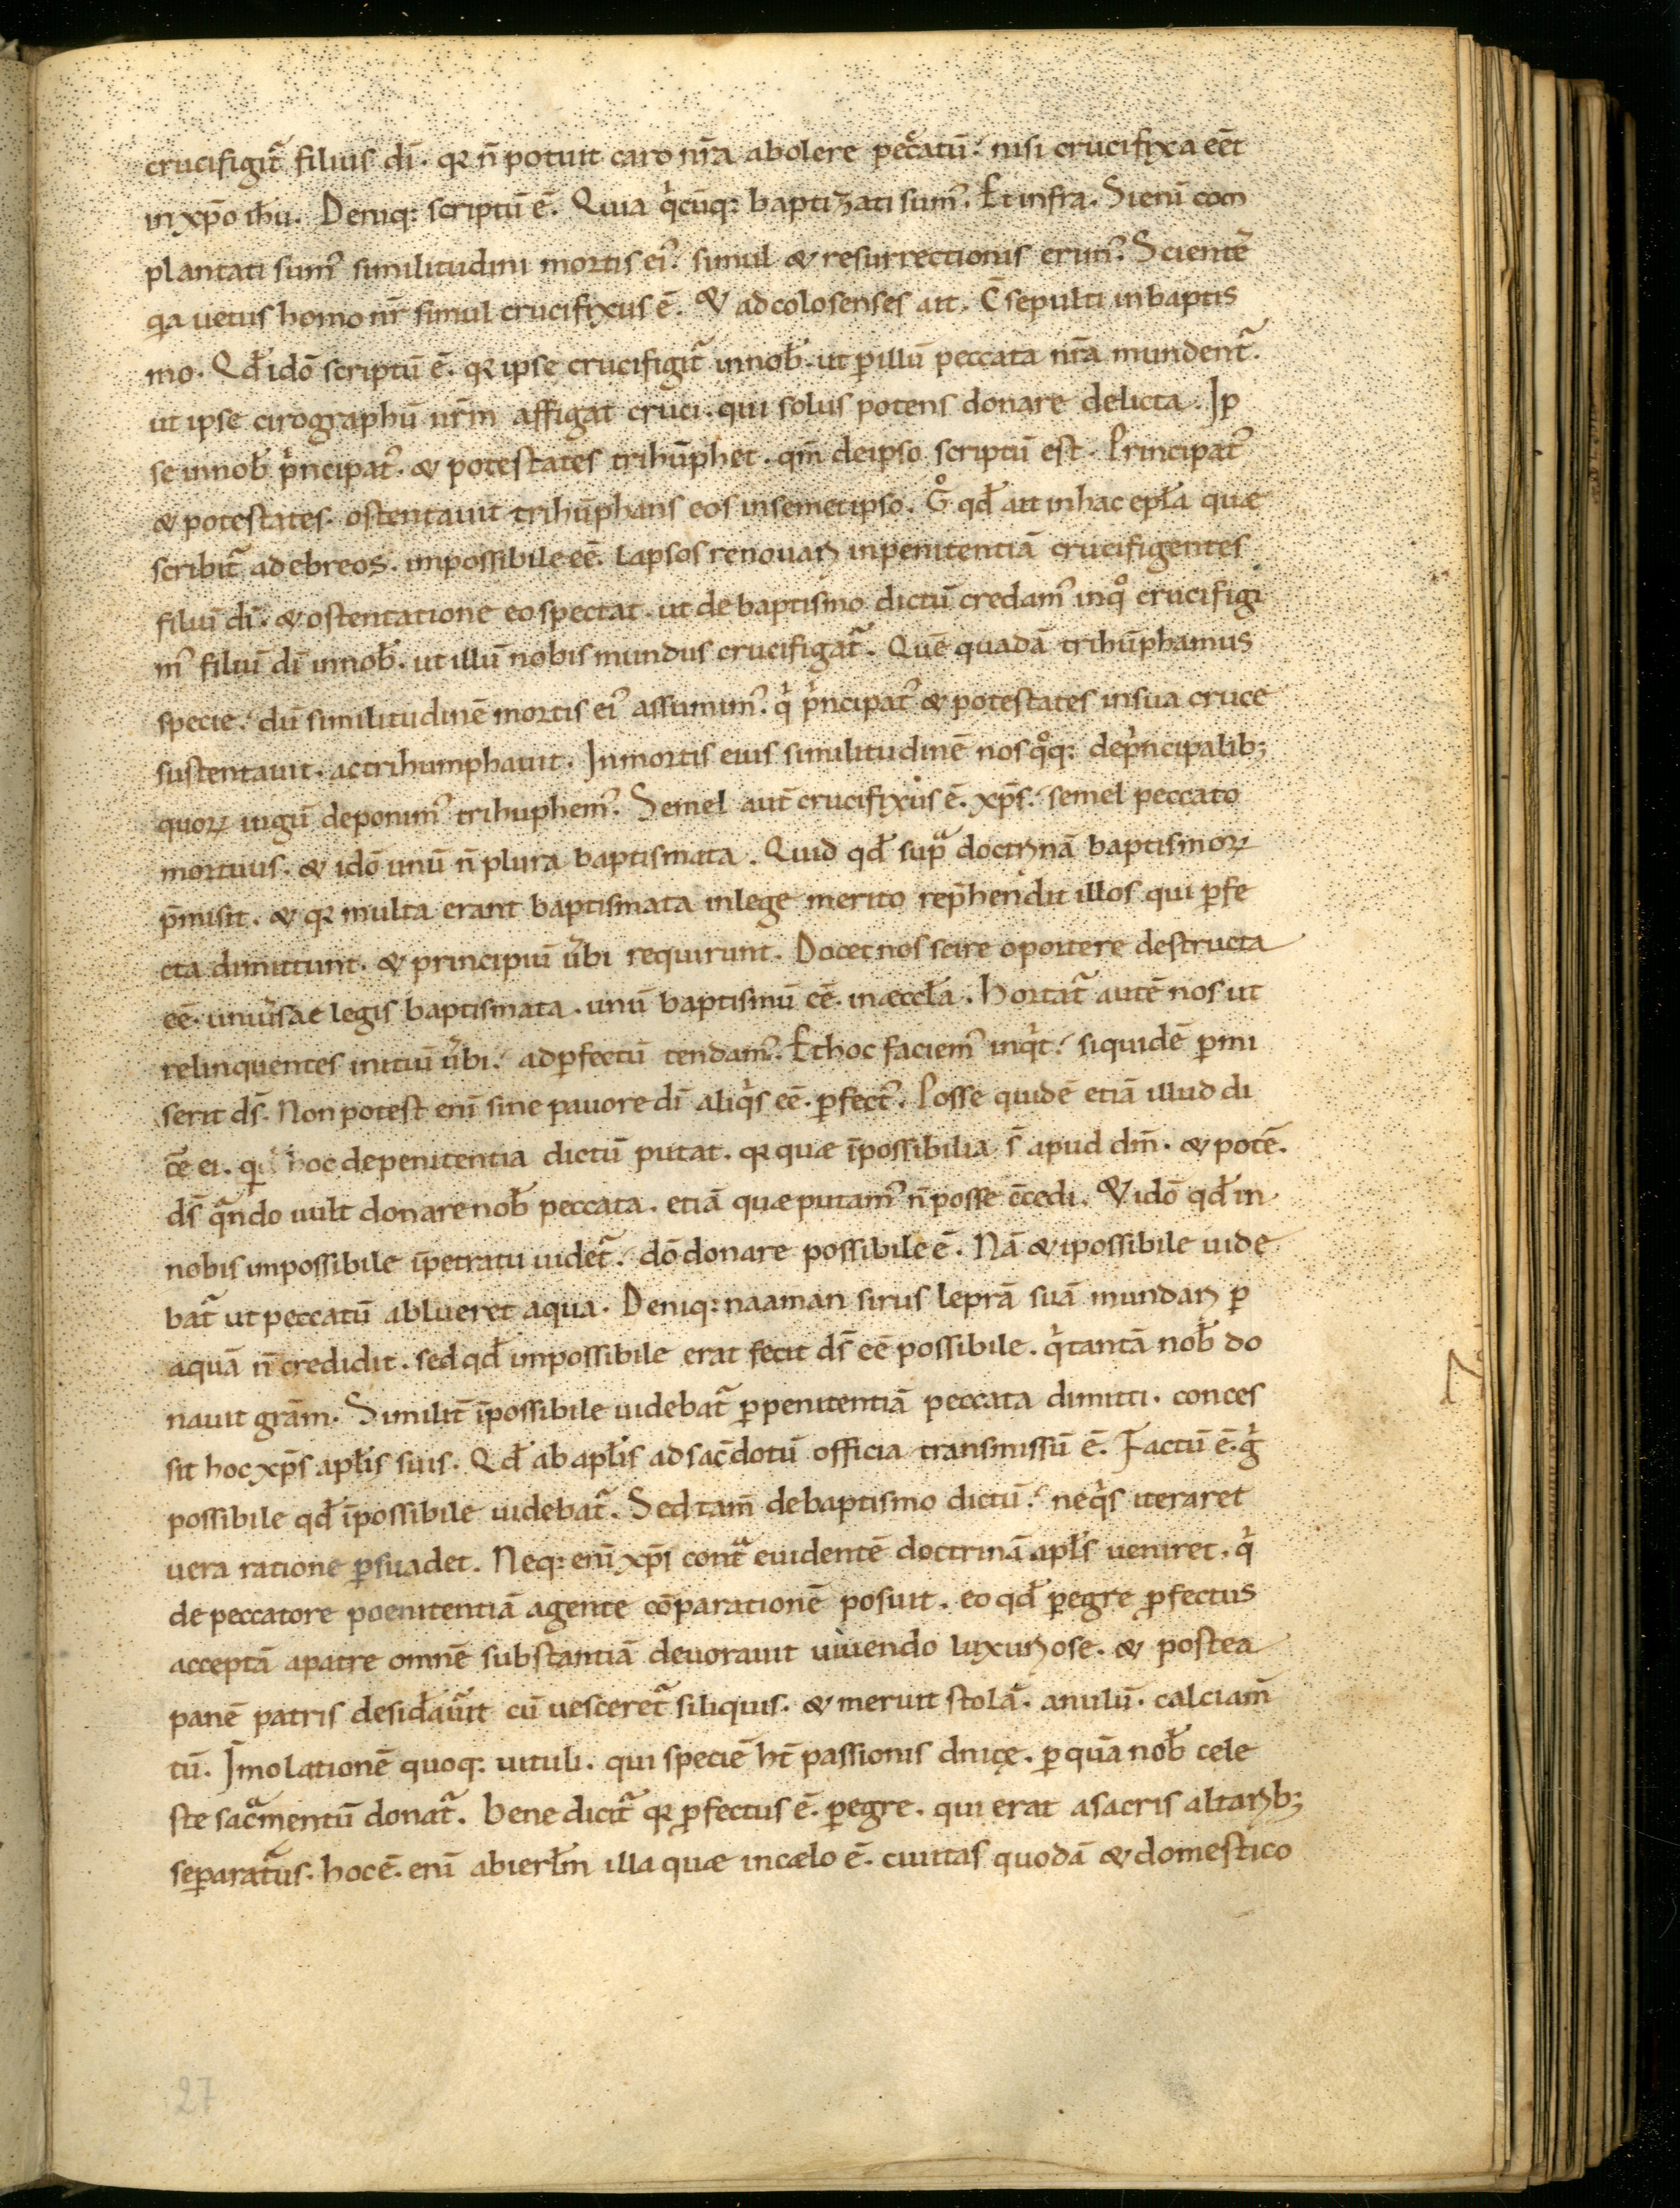 crucifigit᷑ filius dī. qꝛ n̄ potuit caro nr̄a abolere pec̄catū. nisi crucifixa eēt
in xp̄o ihū. Deniq: scriptū ē. Quia qͥcūq: baptizati sumꝰ. Et infra. Si enī com
plantati sumꝰ similitudini mortis eiꝰ. simul & resurrectionis erimꝰ. Scientē
qa uetus homo nr̄ simul crucifixus ē. & ad colosenses ait. C̄sepulti in baptis
mo. Qđ idō scriptū ē. qꝛ ipse crucifigit᷑ in nob̄. ut ꝑ illū peccata nr̄a mundent᷑.
ut ipse cirographū nrm̄ affigat cruci. qui solus potens donare delicta. Ip
se in nob̄ pͥncipatꝰ. & potestates trihūphet. qm̄ de ipso scriptū est. Principatꝰ
& potestates. ostentauit trihūphans eos in semetipso. Gͦ qđ ait in hac epła quae
scribit᷑ ad ebreos. impossibile eē. lapsos renouari in penitentiā crucifigentes
filiū dī. & ostentatione eo spectat. ut de baptismo dictū credamꝰ in qͦ crucifigi
mꝰ filiū dī in nob̄. ut illū nobis mundus crucifigat᷑. Quē quadā trihūphamus
specie. dū similitudinē mortis eiꝰ assumimꝰ. qͥ pͥncipatꝰ & potestates in sua cruce
sustentauit. ac trihumphauit. In mortis eius similitudinē nos qͦq: de pͥncipalib;
quoꝝ iugū deponimꝰ trihuphemꝰ. Semel aut̄ crucifixus ē. xp̄s. semel peccato
mortuus. & idō unū n̄ plura baptismata. Quid qđ supᷓ doctrinā baptismoꝝ
p̄misit. & qꝛ multa erant baptismata in lege merito rep̄hendit illos qui ꝑfe
cta dimittunt. & principiū ūbi requirunt. Docet nos scire oportere destructa
eē. uniūsae legis baptismata. unū baptismū eē. in aeccła. Hortat᷑ autē nos ut
relinquentes initiū ūbi. ad ꝑfectū tendamꝰ. Et hoc faciemꝰ inqͥt. siquidē ꝑmi
serit dS̄. Non potest enī sine pauore dī aliqͥs eē. ꝑfectꝰ. Posse quidē etiā illud di
cē ei. qui hoc de penitentia dictū putat. qꝛ quae īpossibilia s̄ apud dm̄. & potē.
ds̄ qᷓndo uult donare nob̄ peccata. etiā quae putamꝰ n̄ posse c̄cedi. & idō qđ in
nobis impossibile īpetratu uidet᷑. dō donare possibile ē. Nā & ipossibile uide
bat᷑ ut peccatū ablueret aqua. Deniq: naaman sirus leprā suā mundari ꝑ
aquā n̄ credidit. sed qđ impossibile erat fecit ds̄ eē possibile. qͥ tantā nob̄ do
nauit grām. Similit̄ īpossibile uidebat᷑ ꝑ penitentiā peccata dimitti. conces
sit hoc xp̄s apłis suis. Qđ ab apłis ad sac̄dotū officia transmissū ē. Factū ē. gͥ
possibile qđ īpossibile uidebat᷑. Sed tam̄ de baptismo dictū. ne qͥs iteraret
uera ratione ꝑsuadet. Neq: enī xp̄i contᷓ euidentē doctrinā apłs ueniret. qͥ
de peccatore poenitentiā agente cōparationē posuit. eo qđ ꝑegre ꝓfectus
acceptā a patre omnē substantiā deuorauit uiuendo luxuriose. & postea
panē patris desiđauit cū uesceret᷑ siliquis. & meruit stolā. anulū. calciam̄
tū. Īmolationē quoq: uituli. qui speciē ht̄ passionis dn̄icę. ꝑ quā nob̄ cele
ste sacᷓmentū donat᷑. bene dicit᷑ qꝛ ꝓfectus ē. ꝑegre. qui erat a sacris altarib;
separatus. hoc ē. enī ab ierłm illa quae in caelo ē. ciuitas quodā & domestico
27